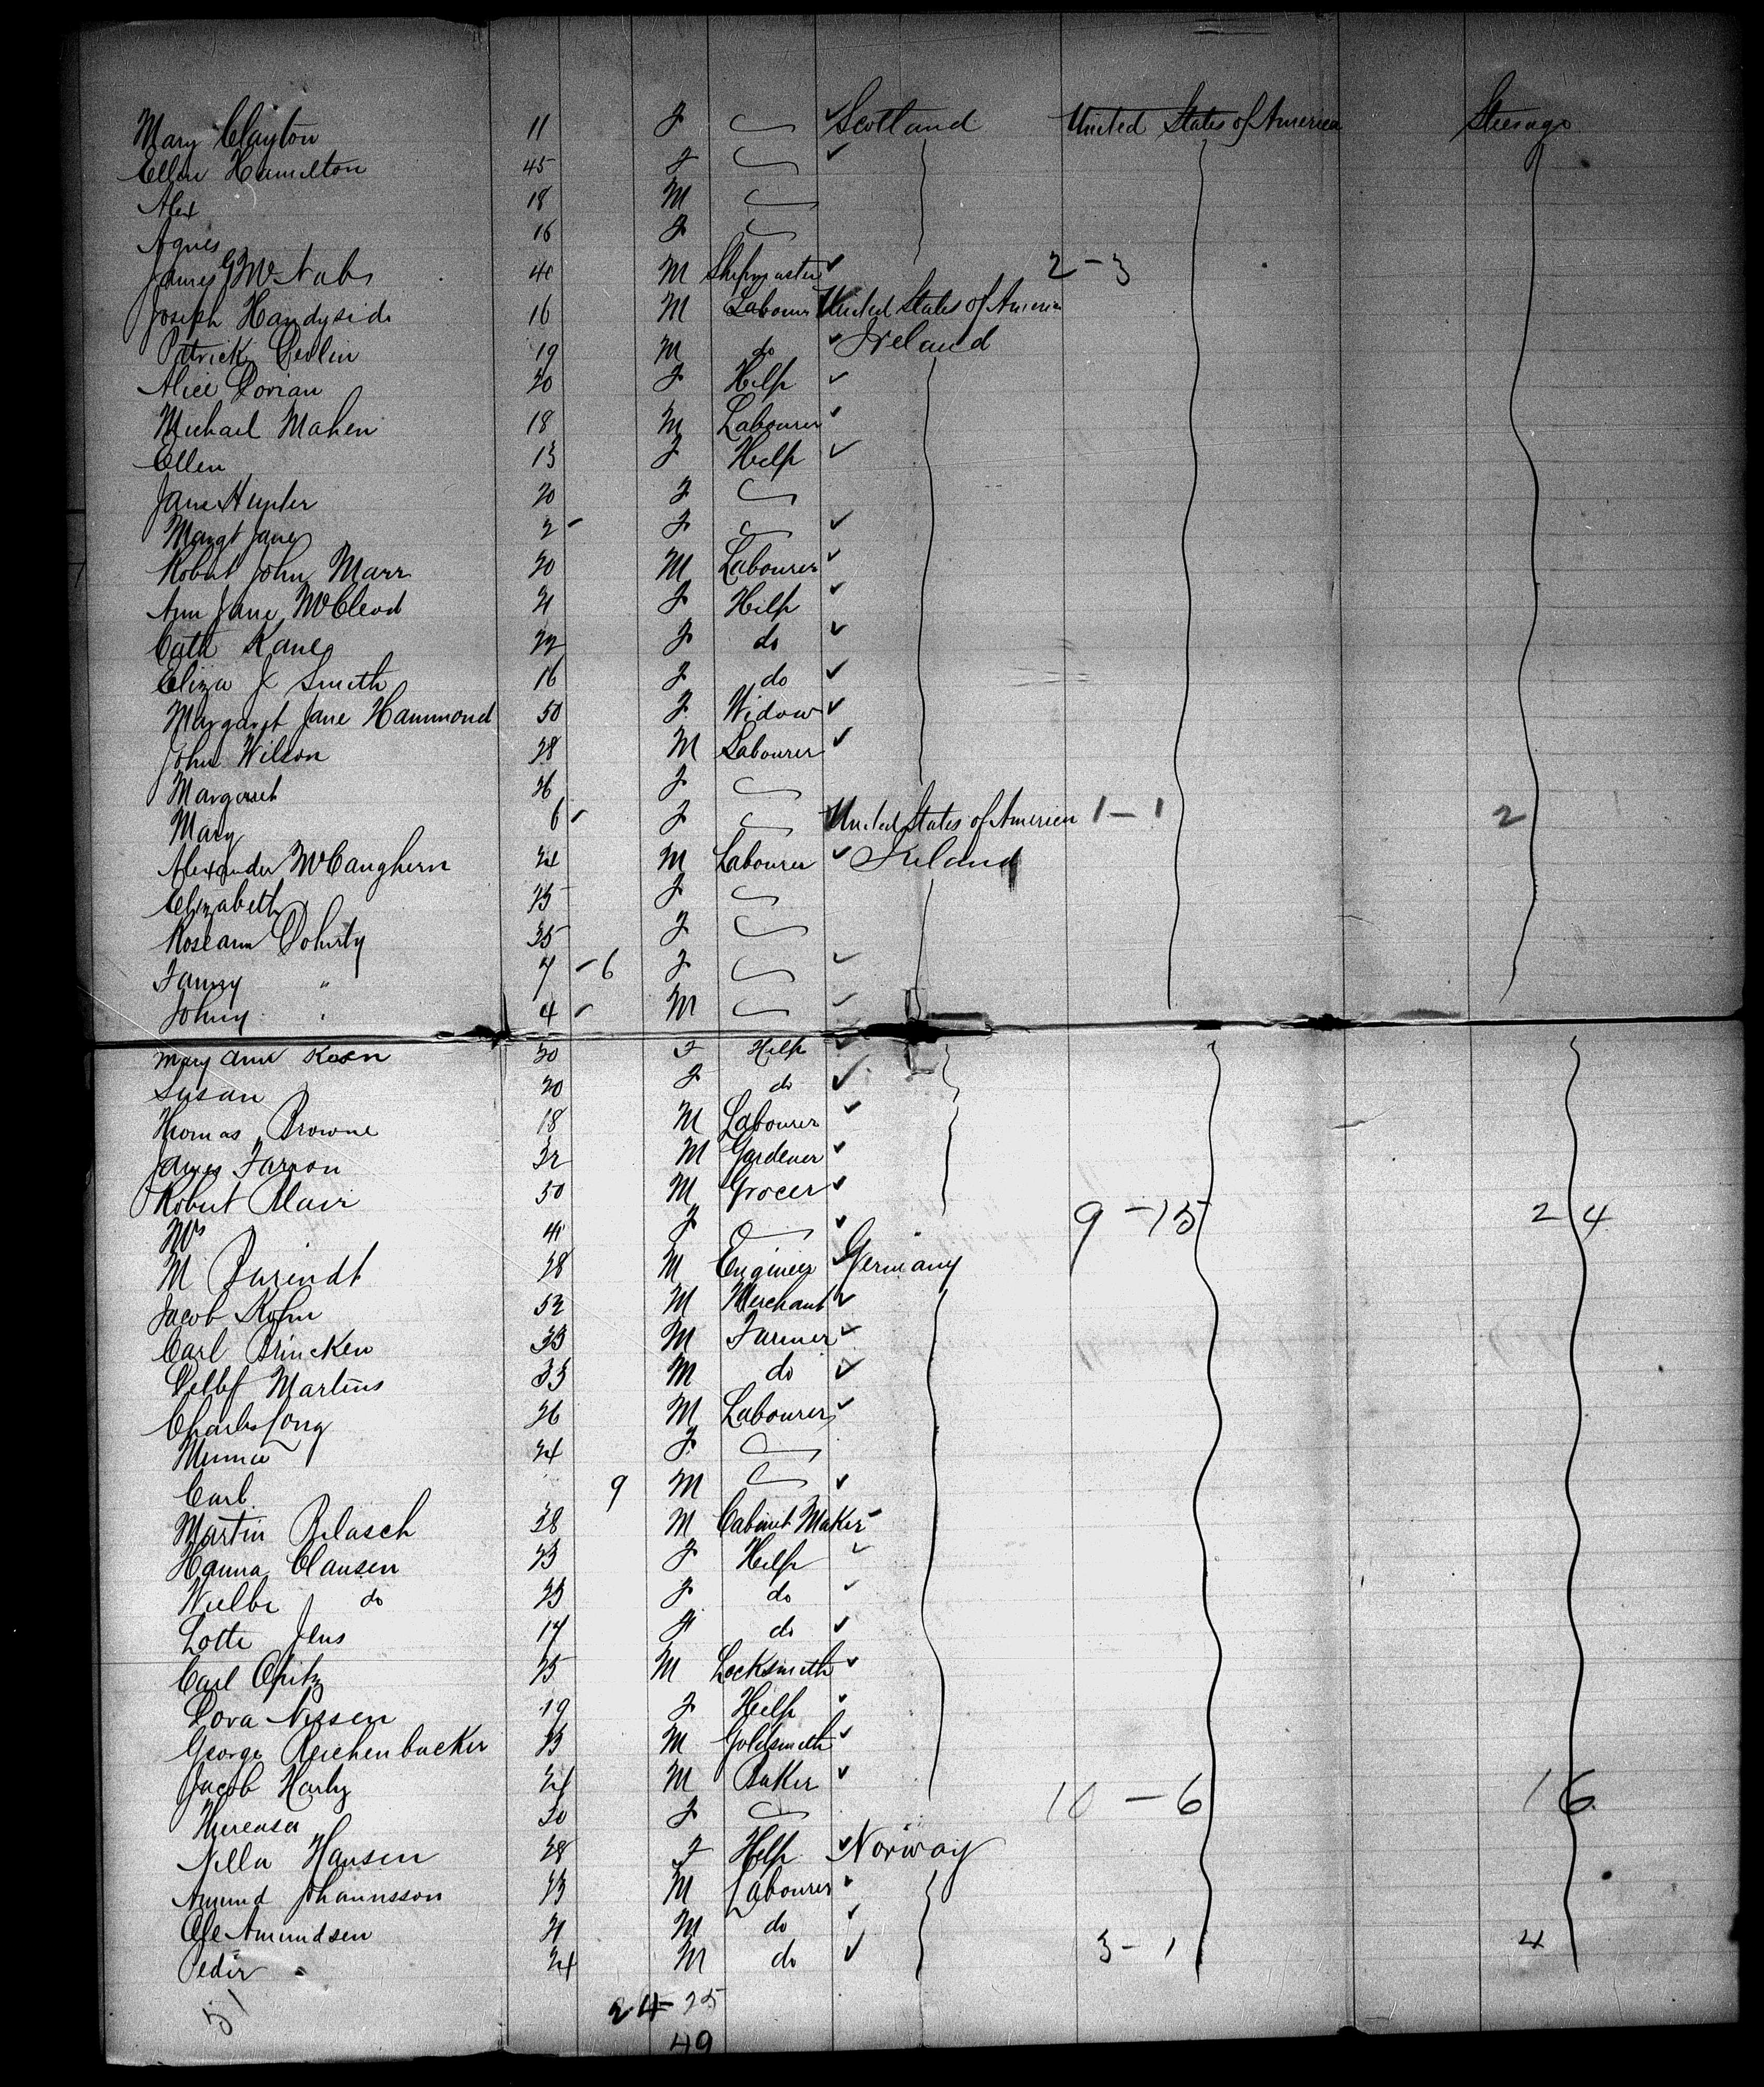 Mary Clayton 11 F Scotland United States of America Steerage
Ellen Hamilton 45 F
Alex 18 M
Agnes 16 F
James G McNabs 40 M Shipmaster 2 - 3
Joseph Handyside 16 M Labourer United States of America
Patrick Devlin 19 M do Ireland
Alice Dorrian 20 F Help
Michael Mahen 18 M Labourer
Ellen 13 F Help
Jane Hunter 20 F
Margt Jane 2 - F
Robert John Marr 20 M Labourer
Ann Jane McCleod 21 F Help
Cath Kane 22 F do
Eliza J Smith 16 F do
Margaret Jane Hammond 50 F Widow
John Wilson 28 M Labourer
Margaret 26 F
Mary 6 - F United States of America 1 - 1 2
Alexander McCaughern 24 M Labourer Ireland
Elizabeth 25 F
Roseann Doherty 35 F
Fanny " 7 - 6 F
Johny " 4 - M
Mary Ann Keen 20 F Help
Susan 20 F do
Thomas Browne 18 M Labourer
James Farron 32 M Gardener
Robert Blair 50 M Grocer
Mrs 41 F 9 - 15 24
M Barendt 28 M Engineer Germany
Jacob Kohn 52 M Merchant
Carl Brincken 33 M Farmer
Detlef Martins 33 M do
Charles Jong 26 M Labourer
Minnie 24 F
Carl 9 M
Martin Blasch 28 M Cabinet Maker
Hanna Clausen 23 F Help
Wielbe do 23 F do
Lotte Jens 17 F do
Carl Opitz 25 M Locksmith
Dora Nissen 19 F Help
George Reichenbacker 23 M Goldsmith
Jacob Harly 24 M Baker
Theresa 20 F 10 - 6 16
Nilla Hansen 28 F Help Norway
Amund Johannsson 23 M Labourer
Ole Amundsen 21 M do
Peder " 24 M do 3 - 1 4
51 24 - 25
49